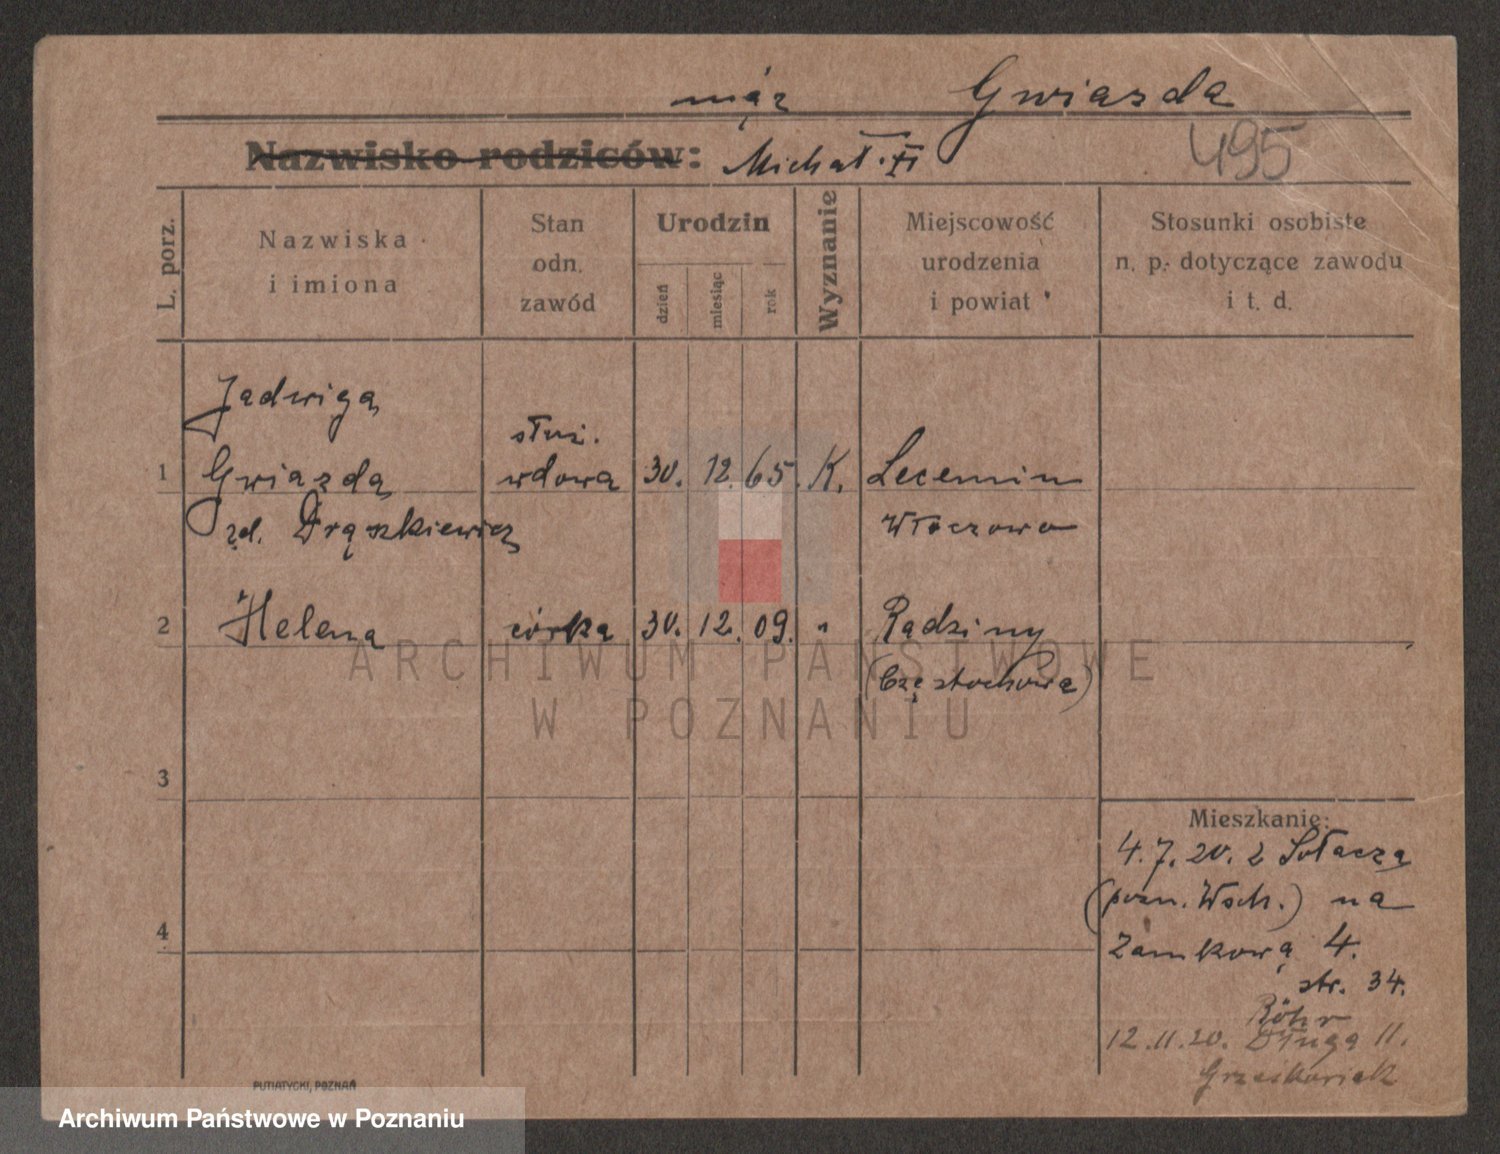 mąż Gwiazda
Nazwisko rodziców: Michał. XI
495
L. porz.
Nazwiska
i imiona
Stan
odn.
zawód
Urodzin
dzień
miesiąc
rok
Wyznanie
Miejscowość
urodzenia
i powiat
Stosunki osobiste
n. p. dotyczące zawodu
i t. d.
Jadwiga
służ.
1 Gwiazda wdowa 30. 12. 65. K. Lecemin
zd. Drążkiewicz Włoczowa
2 Helena córka 30. 12. 09. " Rądziny
(Częstochowa)
3
Mieszkanie:
4. 7. 20. z Sołacza
(pozn. Wsch.) na
4 Zamkową 4.
str. 34.
Röhr
12. 11. 20. Długa 11.
Grześkowiak
PUTIATYCKI, POZNAŃ
ARCHIWUM PAŃSTWOWE
W POZNANIU
Archiwum Państwowe w Poznaniu